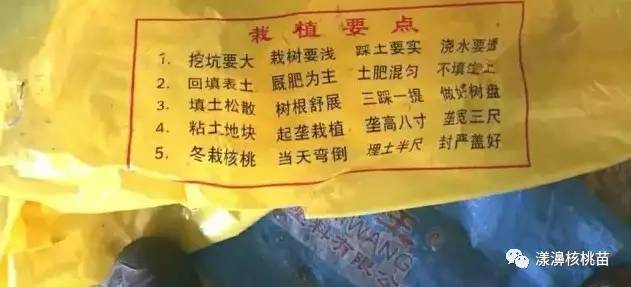 栽植要点
1. 挖坑要大 栽树要浅 踩土要实 浇水要透
2. 回填表土 厩肥为主 土肥混匀 不填生土
3. 填土松散 树根舒展 三踩一提 做好树盘
4. 粘土地块 起垄栽植 垄高八寸 垄宽三尺
5. 冬栽核桃 当天弯倒 埋土半尺 封严盖好
WANG
料有限公
漾濞核桃苗